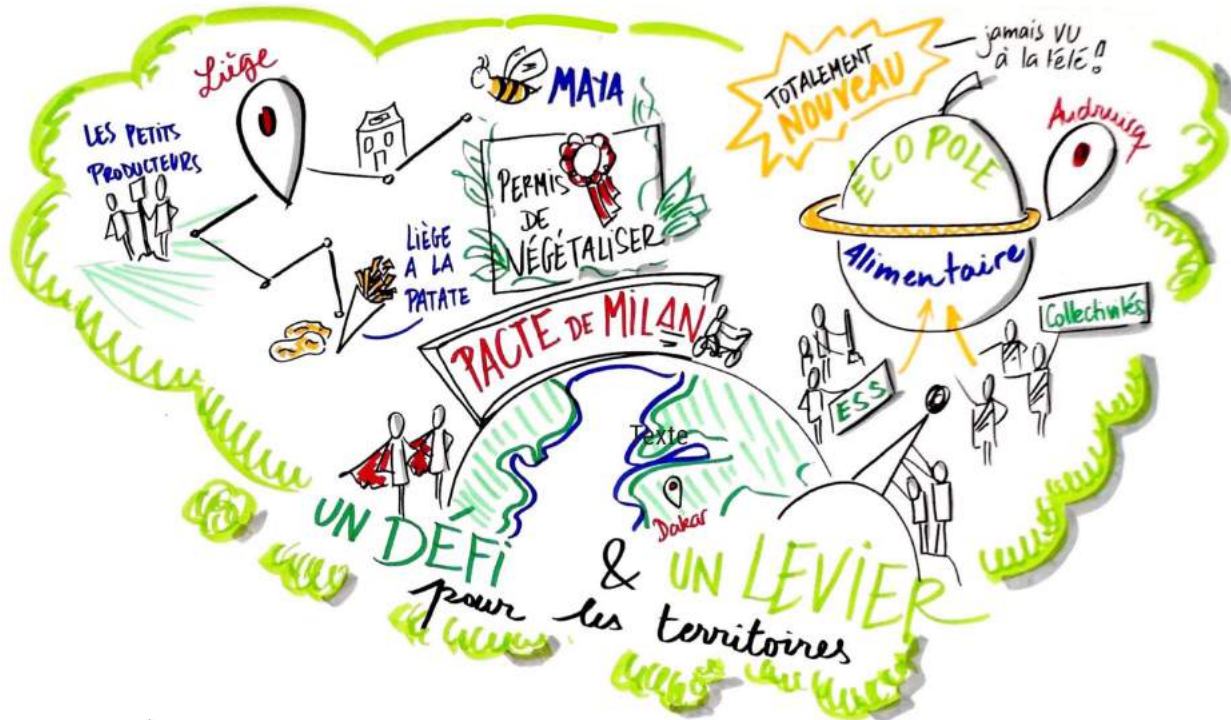 Liège
LES PETITS
PRODUCTEURS
MAYA
PERMIS
DE
VÉGÉTALISER
LIÈGE
A LA
PATATE
TOTALEMENT
NOUVEAU
jamais VU
à la télé!
ECOPOLE
Alimentaire
Audruicq
Collectivités
ESS
PACTE DE MILAN
Texte
Dakar
UN DÉFI
& UN LEVIER
pour les territoires